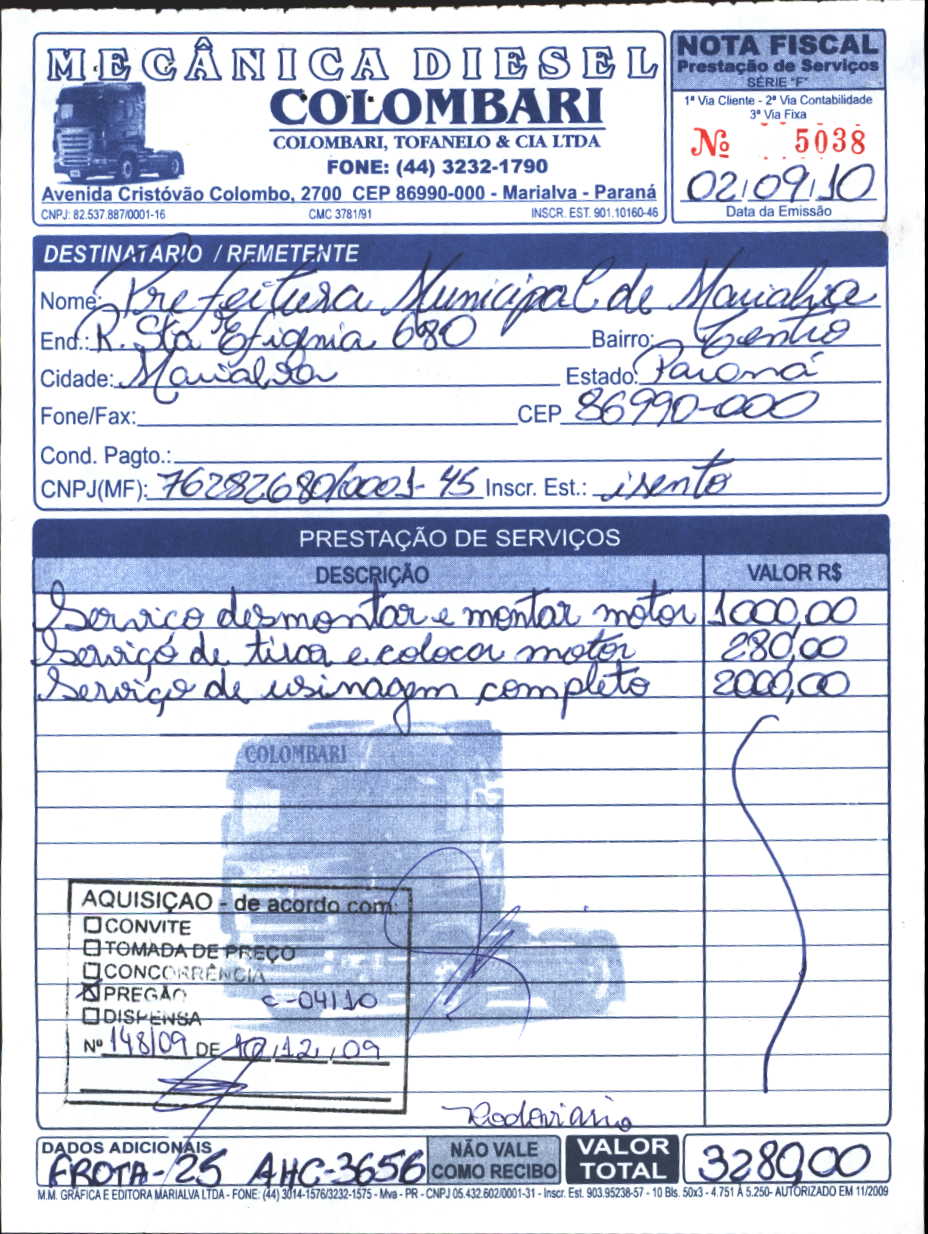 MECÂNICA DIESEL
COLOMBARI
COLOMBARI, TOFANELO & CIA LTDA
FONE: (44) 3232-1790
Avenida Cristóvão Colombo, 2700 CEP 86990-000 - Marialva - Paraná
CNPJ: 82.537.887/0001-16 CMC 3781/91 INSCR. EST. 901.10160-46
NOTA FISCAL
Prestação de Serviços
SÉRIE "F"
1ª Via Cliente - 2ª Via Contabilidade
3ª Via Fixa
Nº 5038
02/09/10
Data da Emissão
DESTINATARIO / REMETENTE
Nome: Prefeitura Municipal de Marialva
End.: R. Sta Efigenia 680 Bairro: Centro
Cidade: Marialva Estado: Paraná
Fone/Fax: CEP 86990-000
Cond. Pagto.:
CNPJ(MF): 76282680/0001-45 Inscr. Est.: isento
PRESTAÇÃO DE SERVIÇOS
DESCRIÇÃO VALOR R$
Serviço desmontar e montar motor 1000,00
Serviço de tirar e colocar motor 280,00
Serviço de usinagem completo 2000,00
COLOMBARI
AQUISIÇAO - de acordo com:
CONVITE
TOMADA DE PREÇO
CONCORRÊNCIA
PREGÃO C-04/10
DISPENSA
Nº 148/09 DE 10/12/09
Rodoviario
DADOS ADICIONAIS
FROTA-25 AHC-3656
NÃO VALE
COMO RECIBO
VALOR
TOTAL
3280,00
M.M. GRÁFICA E EDITORA MARIALVA LTDA - FONE: (44) 3014-1576/3232-1575 - Mva - PR - CNPJ 05.432.602/0001-31 - Inscr. Est. 903.95238-57 - 10 Bls. 50x3 - 4.751 À 5.250- AUTORIZADO EM 11/2009